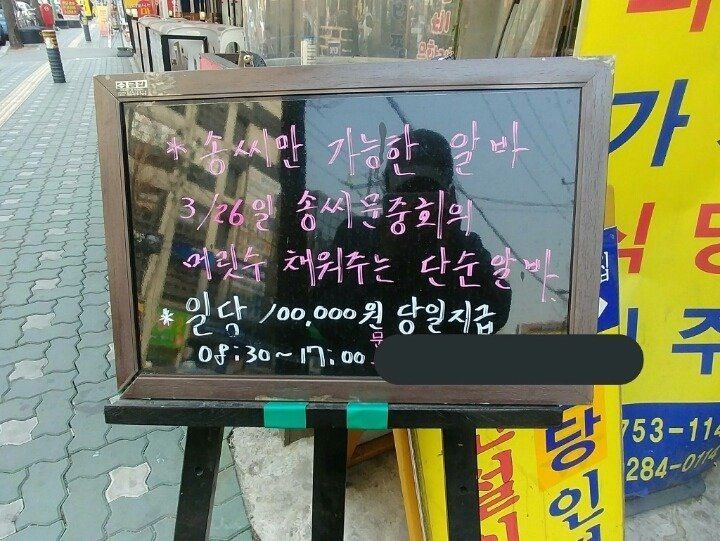 * 송씨만 가능한 알바
3/26일 송씨문중회의
머릿수 채워주는 단순알바.
* 일당 100,000원 당일지급
08:30~17:00 문
가
식당
주
753-114
284-0114
당
인